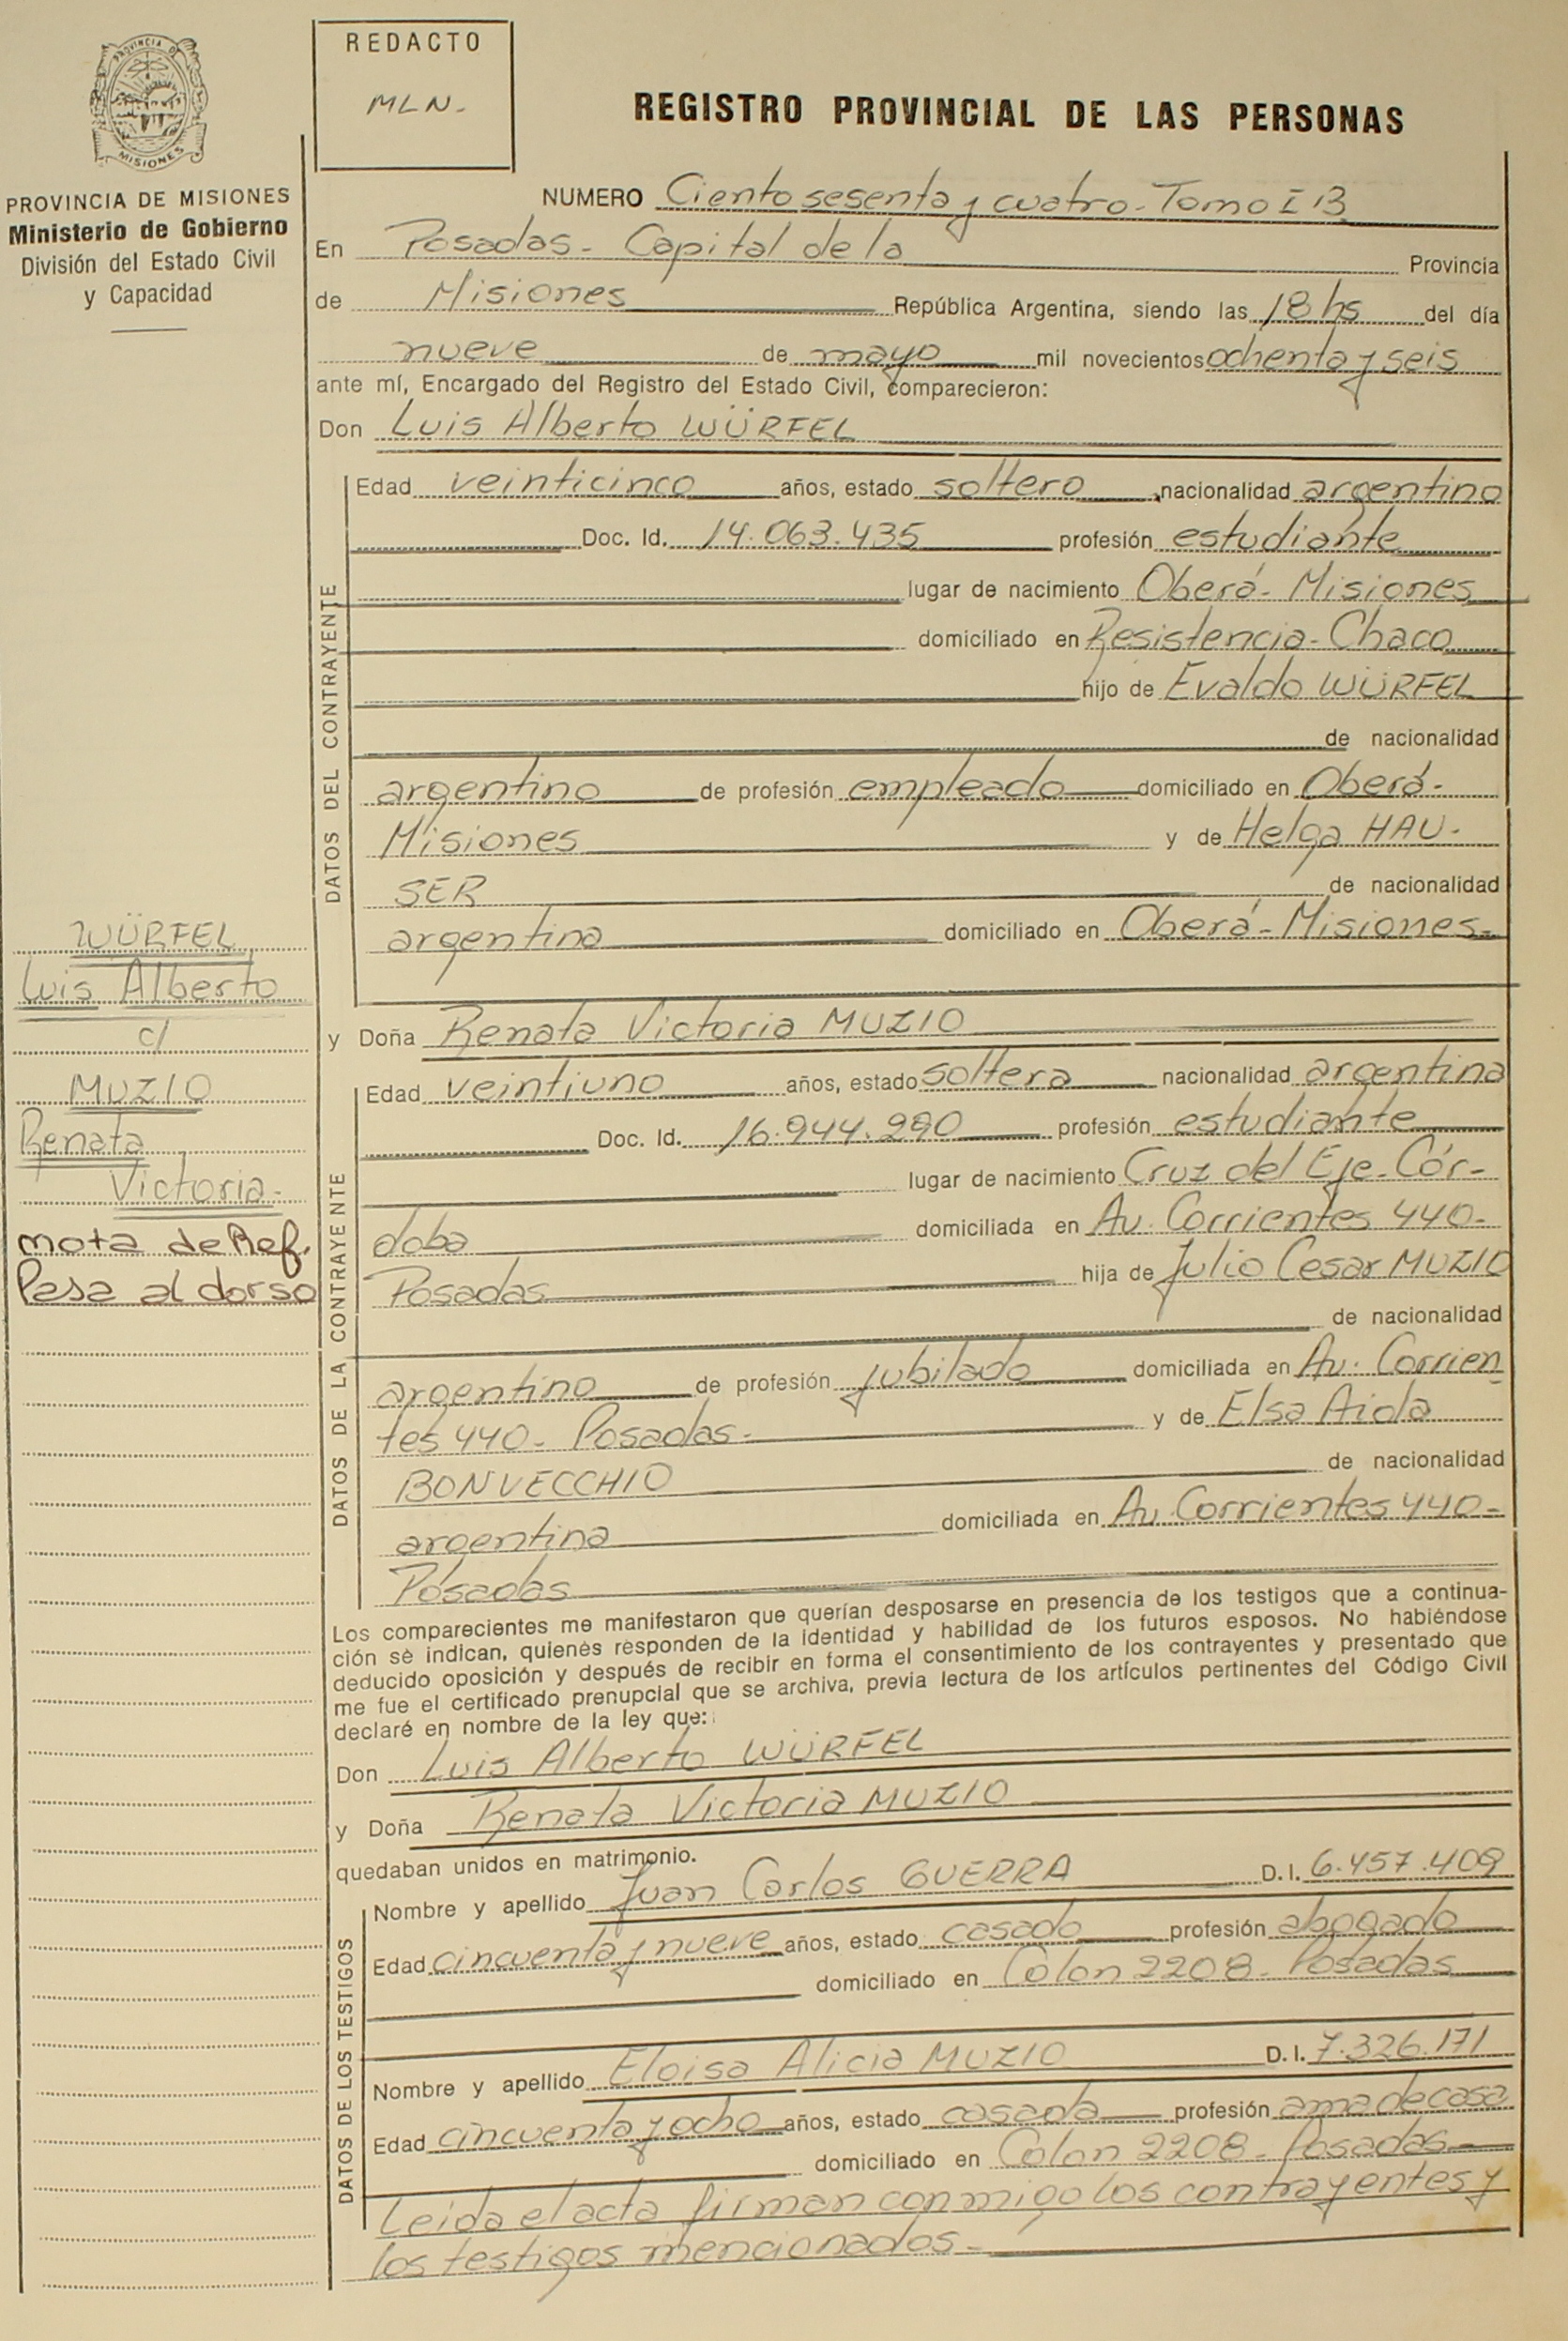 PROVINCIA DE
MISIONES
PROVINCIA DE MISIONES
Ministerio de Gobierno
División del Estado Civil
y Capacidad
REDACTO
MLN-
REGISTRO PROVINCIAL DE LAS PERSONAS
NUMERO Ciento sesenta y cuatro - Tomo I B
En Posadas - Capital de la Provincia
de Misiones República Argentina, siendo las 18 hs del día
nueve de mayo mil novecientos ochenta y seis
ante mí, Encargado del Registro del Estado Civil, comparecieron:
Don Luis Alberto WÜRFEL
DATOS DEL CONTRAYENTE
Edad veinticinco años, estado soltero nacionalidad argentino
Doc. Id. 14.063.435 profesión estudiante
lugar de nacimiento Oberá - Misiones
domiciliado en Resistencia - Chaco
hijo de Evaldo WÜRFEL
de nacionalidad
argentino de profesión empleado domiciliado en Oberá -
Misiones y de Helga HAU-
SER de nacionalidad
argentina domiciliado en Oberá - Misiones -
WÜRFEL
Luis Alberto
c/
MUZIO
Renata
Victoria -
nota de Ref.
Pasa al dorso
y Doña Renata Victoria MUZIO
DATOS DE LA CONTRAYENTE
Edad veintiuno años, estado soltera nacionalidad argentina
Doc. Id. 16.944.290 profesión estudiante
lugar de nacimiento Cruz del Eje - Cór-
doba domiciliada en Av. Corrientes 440 -
Posadas hija de Julio Cesar MUZIO
de nacionalidad
argentino de profesión jubilado domiciliada en Av. Corrien
tes 440 - Posadas - y de Elsa Aida
BONVECCHIO de nacionalidad
argentina domiciliada en Av. Corrientes 440 -
Posadas
Los comparecientes me manifestaron que querían desposarse en presencia de los testigos que a continua-
ción sè indican, quienès responden de la identidad y habilidad de los futuros esposos. No habiéndose
deducido oposición y después de recibir en forma el consentimiento de los contrayentes y presentado que
me fue el certificado prenupcial que se archiva, previa lectura de los artículos pertinentes del Código Civil
declaré en nombre de la ley que:
Don Luis Alberto WÜRFEL
y Doña Renata Victoria MUZIO
quedaban unidos en matrimonio.
DATOS DE LOS TESTIGOS
Nombre y apellido Juan Carlos GUERRA D.I. 6.457.409
Edad cincuenta y nueve años, estado casado profesión abogado
domiciliado en Colon 2208 - Posadas
Nombre y apellido Eloisa Alicia MUZIO D.I. 7.326.171
Edad cincuenta y ocho años, estado casada profesión ama de casa
domiciliado en Colon 2208 - Posadas -
Leida el acta firman conmigo los contrayentes y
los testigos mencionados -